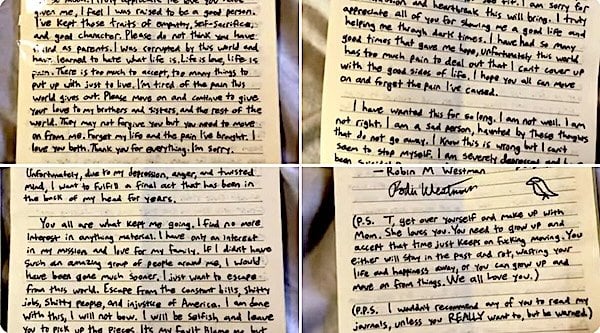 given me, I feel I was raised to be a good person.
I've kept those traits of empathy, self-sacrifice,
and good character. Please do not think you have
failed as parents. I was corrupted by this world and
have learned to hate what life is. Life is love, life is
pain. There is too much to accept, too many things to
put up with just to live. I'm tired of the pain this
world gives out. Please move on and continue to give
your love to my brothers and sisters, and the rest of the
world. They may not forgive you but you need to move
on from me. Forget my life and the pain I've brought. I
love you both. Thank you for everything. I'm sorry.
I am sorry for
and heartbreak this will bring. I truly
appreciate all of you for showing me a good life and
helping me through dark times. I have had so many
good times that gave me hope. Unfortunately this world
has too much pain to deal out that I can't cover up
with the good sides of life. I hope you all can move
on and forget the pain I've caused.
I have wanted this for so long. I am not well. I am
not right. I am a sad person, haunted by these thoughts
that do not go away. I know this is wrong but I can't
seem to stop myself. I am severely depressed and have
been
Unfortunately, due to my depression, anger, and twisted
mind, I want to fulfill a final act that has been in
the back of my head for years.
You all are what kept me going. I find no more
interest in anything material. I have only an interest
in my mission and love for my family. If I didn't have
such an amazing group of people around me, I would
have been gone much sooner. I just want to escape
from this world. Escape from the constant bills, shitty
jobs, shitty people, and injustice of America. I am done
with this, I will not bow. I will be selfish and leave
you to pick up the pieces. Its my fault. Blame me but
— Robin M Westman
Robin Westman
(P.S. "T, get over yourself and make up with
Mom. She loves you. You need to grow up and
accept that time just keeps on fucking moving. You
either will stay in the past and rot, wasting your
life and happiness away, or you can grow up and
move on from things. We all love you.)
(P.P.S. I wouldn't recommend any of you to read my
journals, unless you REALLY want to, but be warned)